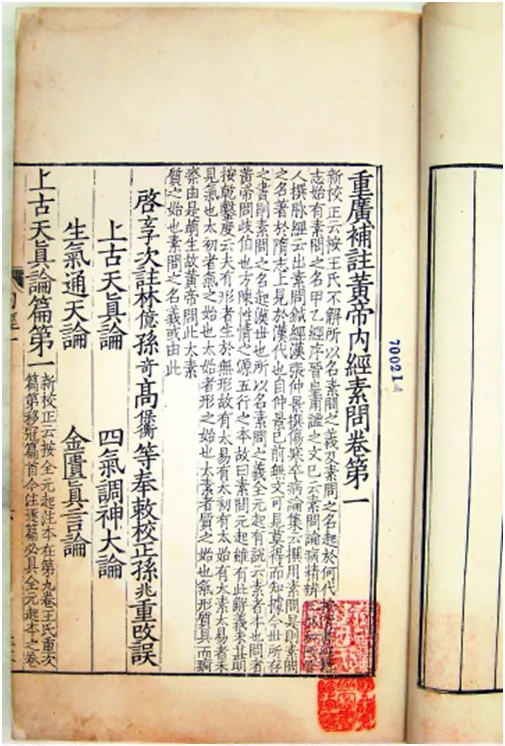 重廣補註黃帝內經素問卷第一
新校正云按王氏不解所以名素問之義及素問之名起於何代按隋書經籍
志始有素問之名甲乙經序晉皇甫謐之文已云素問論病精辨王叔和西晉
人撰脉經云出素問鍼經漢張仲景撰傷寒卒病論集云撰用素問是則素問
之名著於隋志上見於漢代也自仲景已前無文可見莫得而知據今世所存
之書則素問之名起漢世也所以名素問之義全元起有說云素者本也問者
黃帝問歧伯也方陳性情之源五行之本故曰素問元起雖有此解義未甚明
按乾鑿度云夫有形者生於無形故有太易有太初有太始有太素太易者未
見氣也太初者氣之始也太始者形之始也太素者質之始也氣形質具而痾
瘵由是萌生故黃帝問此太素
質之始也素問之名義或由此
啓玄子次註林億孫奇高保衡等奉敕校正孫兆重改誤
上古天眞論 四氣調神大論
生氣通天論 金匱眞言論
上古天眞論篇第一
新校正云按全元起注本在第九卷王氏重次
篇第移冠篇首今注逐篇必具全元起本之卷
70021